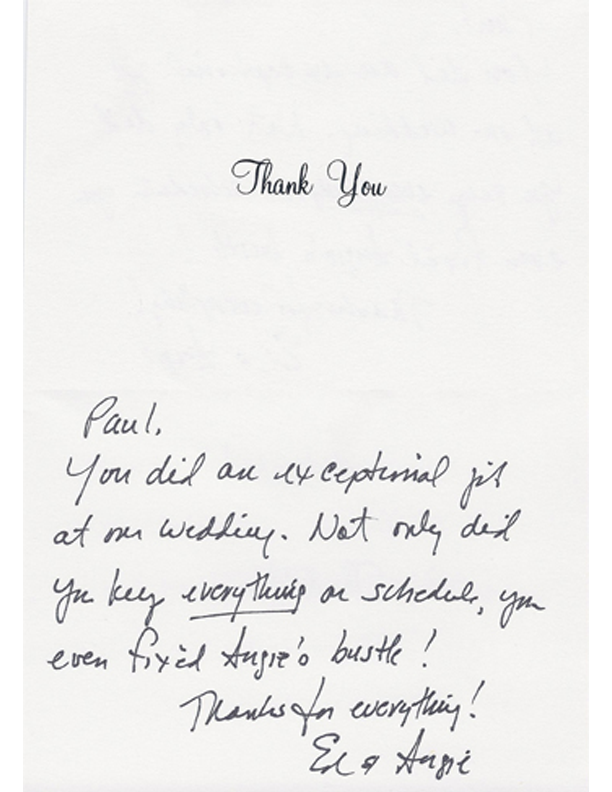 Thank You
Paul,
You did an exceptional job
at our wedding. Not only did
you keep everything on schedule, you
even fix'd Angie's bustle!
Thanks for everything!
Ed & Angie